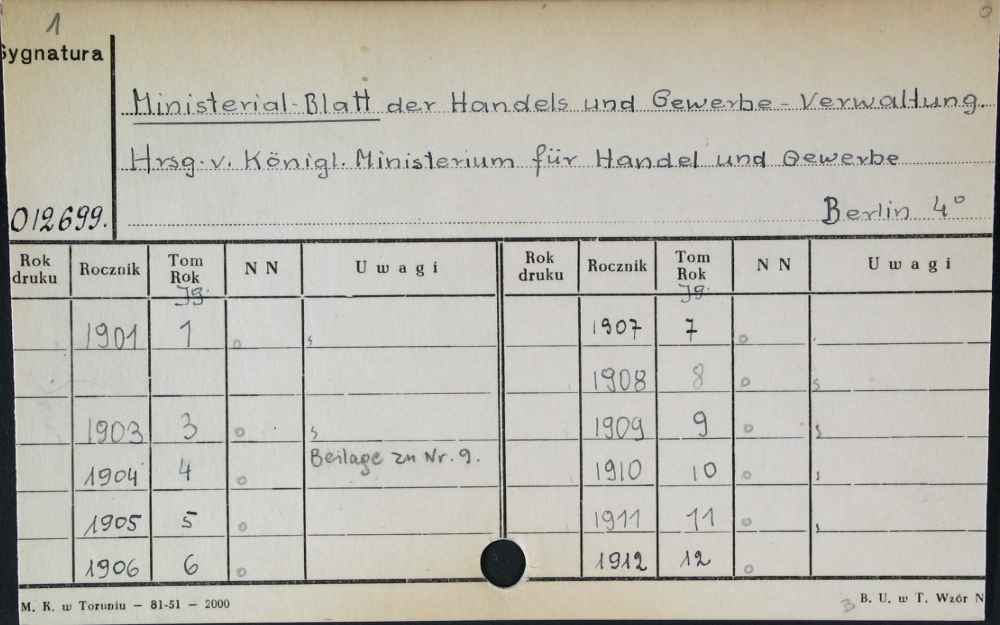 1
Sygnatura
Ministerial-Blatt der Handels und Gewerbe-Verwaltung.
Hrsg. v. Königl. Ministerium für Handel und Gewerbe
012699.
Berlin 4°
Rok druku Rocznik Tom Rok NN Uwagi Rok druku Rocznik Tom Rok NN Uwagi
Jg. Jg.
1901 1 o s 1907 7 o
1908 8 o s
1903 3 o s 1909 9 o s
1904 4 o Beilage zu Nr. 9. 1910 10 o
1905 5 o 1911 11 o
1906 6 o 1912 12 o
M. K. w Toruniu — 81-51 — 2000
B. U. w T. Wzór N